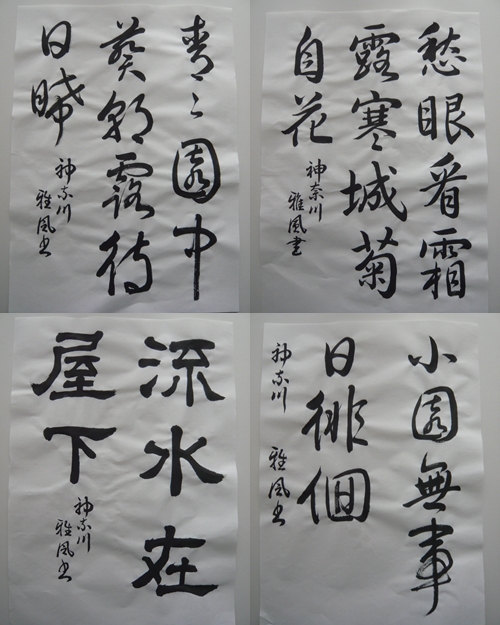 青々園中
葵朝露待
日晞
神奈川
雅風書
愁眼看霜
露寒城菊
自花
神奈川
雅風書
流水在
屋下
神奈川
雅風書
小園無事
日徘徊
神奈川
雅風書